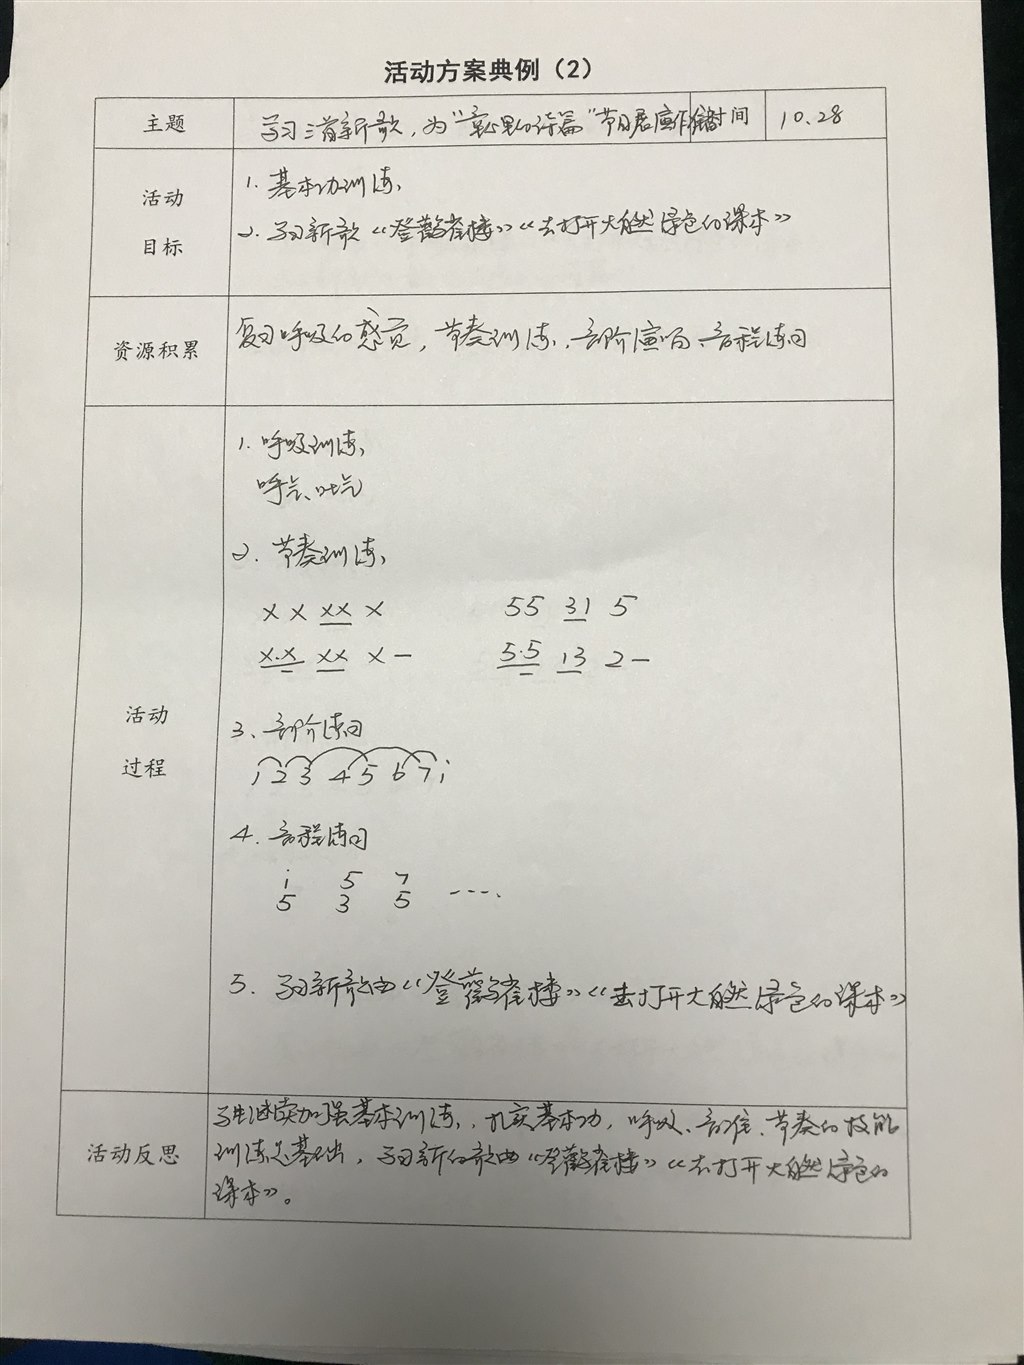 活动方案典例（2）
主题 学习三首新歌，为“童心里的诗篇”节目展演作准备 时间 10.28
活动
目标
1. 基本功训练
2. 学习新歌《登鹳雀楼》《去打开大自然绿色的课本》
资源积累 复习呼吸的感觉，节奏训练、音阶演唱、音程练习
活动
过程
1. 呼吸训练
呼气、吐气
2. 节奏训练
X X XX X 55 31 5
X·X XX X — 5·5 13 2 —
3、音阶练习
1 2 3 4 5 6 7 i
4. 音程练习
i 5 7
5 3 5 ····
5. 学习新歌曲《登鹳雀楼》《去打开大自然绿色的课本》
活动反思
继续加强基本训练，扎实基本功，呼吸、音准、节奏的技能
训练是基础，学习新的歌曲《登鹳雀楼》《去打开大自然绿色的
课本》。